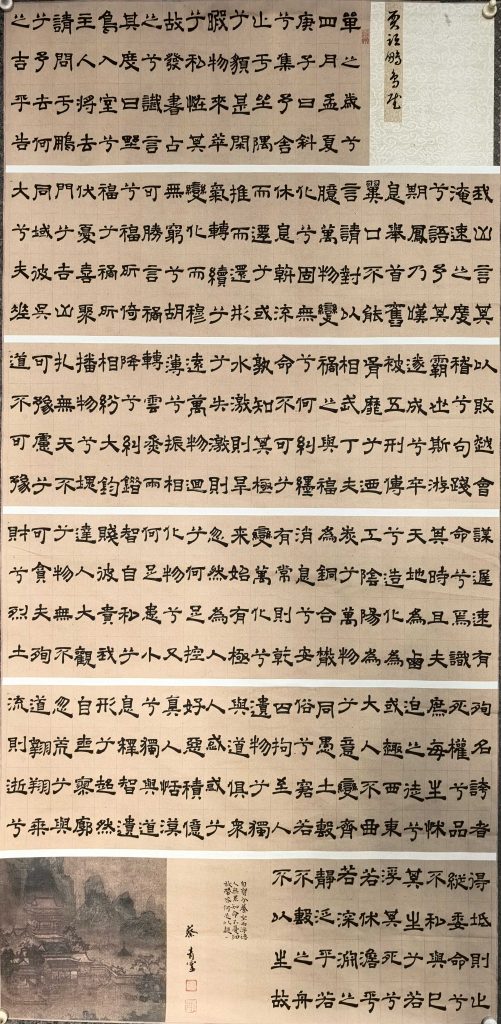 賈誼鵩鳥賦
單之歲兮
四月孟夏
庚子曰斜
兮集予舍
止于坐隅
兮貌甚閑
暇物來萃
兮私怪其
故發書占
之兮讖言
其度曰野
鳥入室兮
主人將去
請問于鵩
兮予去何
之吉乎告
我凶言其
淹速之度
兮語予其
期鳳乃嘆
息舉首奮
翼口不能
言請對以
臆萬物變
化兮固無
休息斡流
而遷兮或
推而還形
氣轉續兮
變化而穆
無窮兮胡
可勝言禍
兮福所倚
福兮禍所
伏憂喜聚
門兮吉凶
同域彼吳
大兮夫差
以敗越會
稽兮句踐
霸世斯游
遂成兮卒
被五刑傅
胥靡兮迺
相武丁夫
禍之與福
兮何糾纆
命不可兮
敦知其極
水激則旱
兮矢激則
遠萬物迴
薄兮振相
轉雲蒸雨
降兮糾錯
相紛大鈞
播物兮塊
扎無天不
可豫慮兮
道不可豫
謀遲速有
命兮焉識
其時且夫
天地為爐
兮造化為
工陰陽為
炭兮萬物
為銅合散
消息兮安
有常則乾
變萬化兮
來始有極
忽然為人
兮何足控
化物兮又
何足患小
智自私兮
賤彼貴我
達人大觀
兮物無不
可貪夫殉
財兮烈士
殉名誇者
死權兮品
庶每生怵
迫之徒兮
或趨西東
大人不曲
兮意變齊
同愚士繫
俗兮窘若
囚拘至人
遺物兮獨
與道俱衆
人惑惑兮
好惡積億
真人恬漠
兮獨與道
息釋智遺
形兮超然
自喪寥廓
忽荒兮與
道翱翔乘
流則逝兮
得坻則止
縱委命兮
不私與己
其生兮若
浮其死兮
若休澹乎
若深淵之
靜泛乎若
不繫之舟
不以生故
自寶兮養空而浮德
人無累知命不憂細
故蒂芥何足以疑